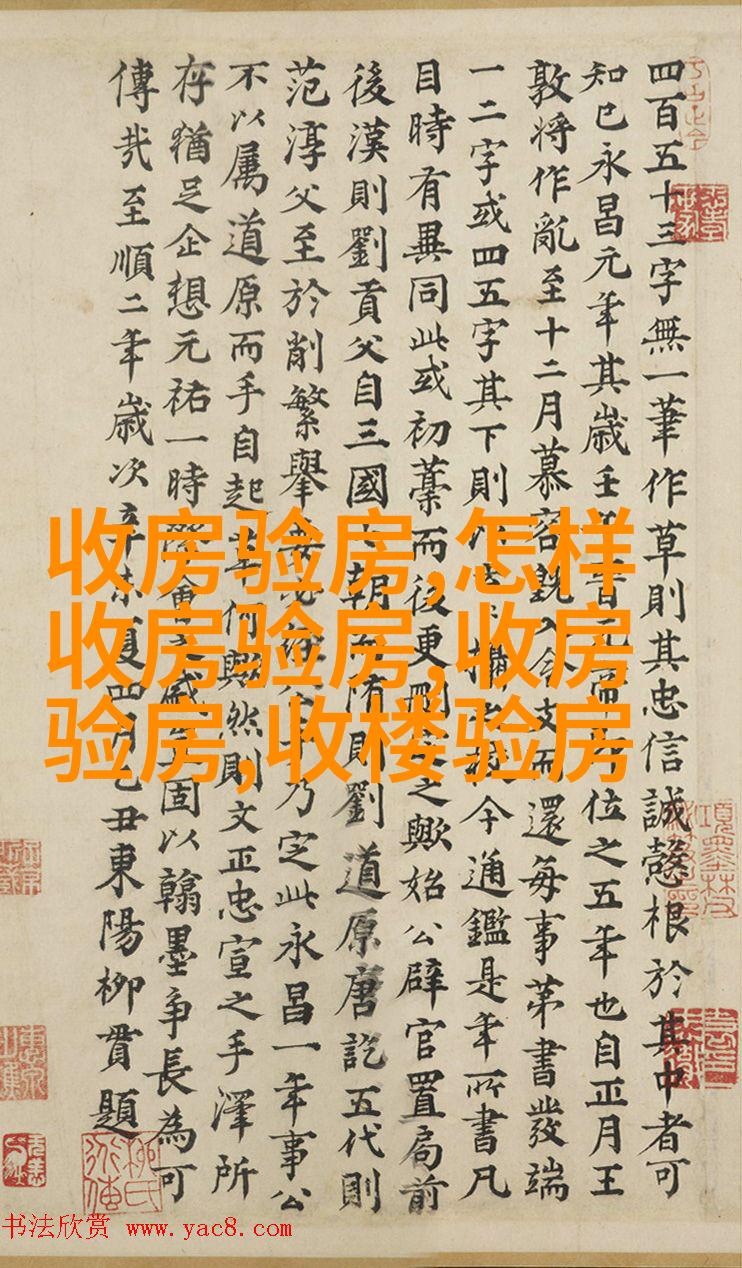 四百五十三字無一筆作草則其忠信誠愨根於其中者可
知已永昌元年其歲壬 晉元帝 位之五年也自正月王
敦將作亂至十二月慕容 入令支而還每事第書發端
一二字或四五字其下則 今通鑑是年所書凡
目時有異同此或初藁而後更 之歟始公辟官置局前
後漢則劉貢父自三國 朝 隋則劉道原唐訖五代則
范淳父至於削繁舉要 公手乃定此永昌一年事公
不以屬道原而手自起草何歟然則文正忠宣之手澤所
存猶足企想元祐一時 固以翰墨爭長為可
傳哉至順二年歲次辛未夏四月乙丑東陽柳貫題
收房验房,怎样
收房验房,收房
验房,收楼验房
柳氏
书法欣赏 www.yac8.com